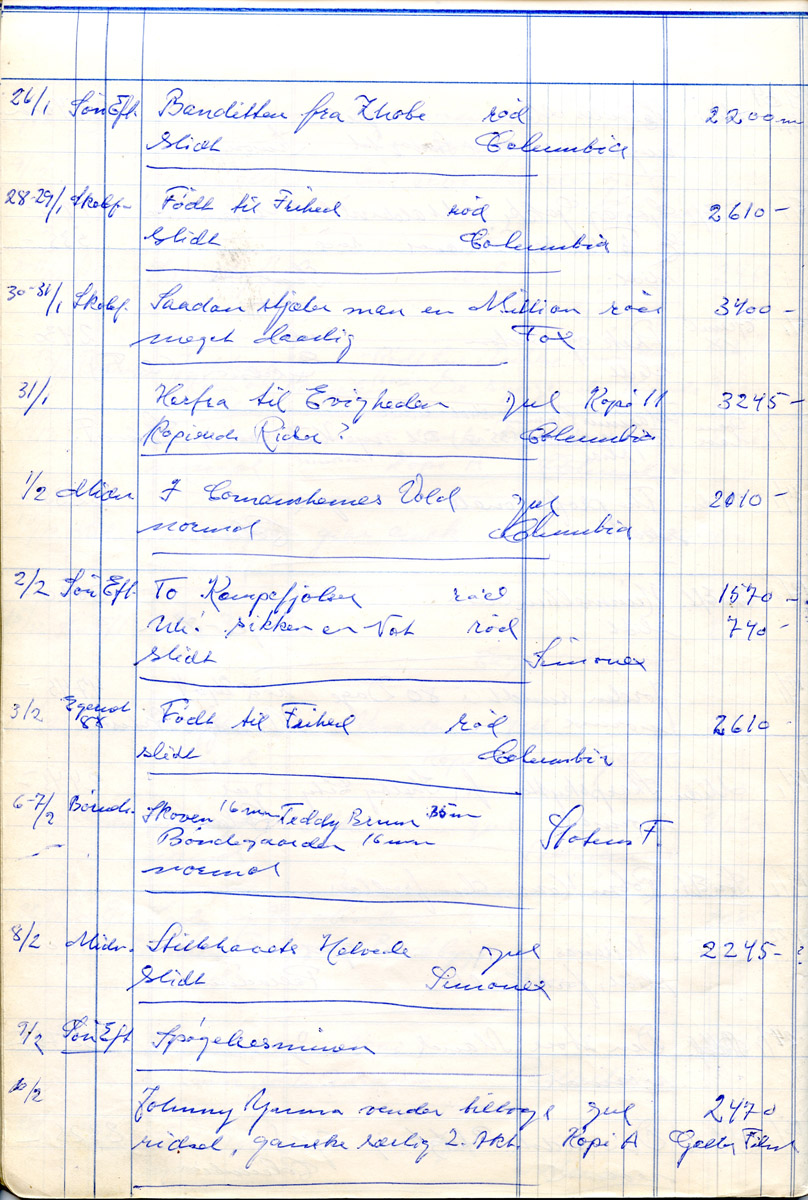 26/1 Søn Eft. Banditten fra Zhobe rød 2200 m
slidt Columbia
28-29/1 Skolef. Født til Frihed rød 2610 -
slidt Columbia
30-31/1 Skolef. Saadan stjæler man en Million rød 3400 -
meget daarlig Fox
31/1 Herfra til Evigheden gul Kopi 11 3245 -
Ridser? Columbia
1/2 Midn. I Comanchernes Vold gul 2010 -
normal Columbia
2/2 Søn Eft. To Kampefjolser rød 1570 -
Uh! sikken en Nat rød 740 -
slidt Simonex
3/2 Født til Frihed rød 2610
slidt Columbia
6-7/2 Børneh. Skoven 16 mm Teddy Brumm 35 m
Bondegaarden 16 mm Statens F.
normal
8/2 Midn. Helvede gul 2245 - ?
slidt Simonex
9/2 Søn Eft Spøgelsesminen
10/2 Johnny Yuma vender tilbage gul 2470
ridset, ganske særlig 2. Akt. Kopi A Film